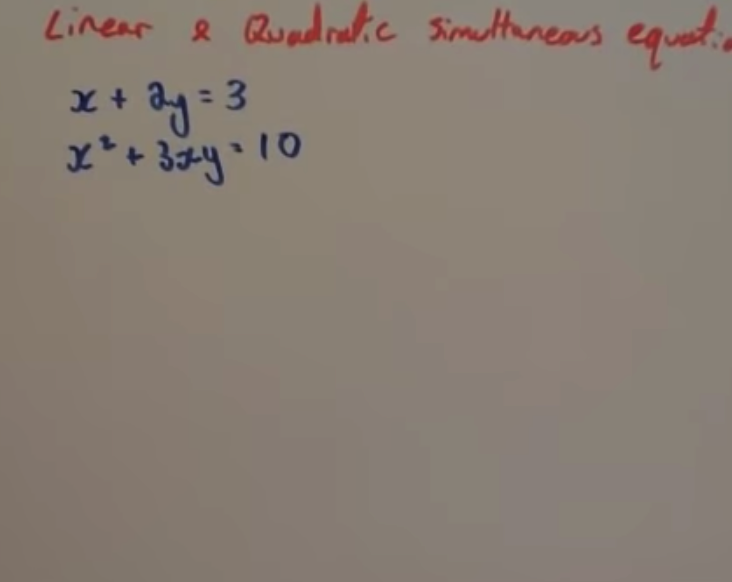 Linear & Quadratic simultaneous equatio
x + 2y = 3
x² + 3xy = 10